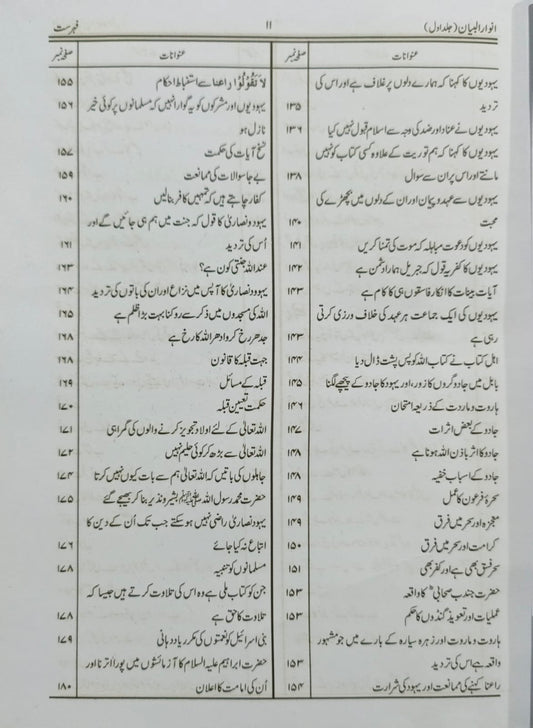 انوار البیان (جلد اول) ۱۱ فہرست
عنوانات صفحہ نمبر
یہودیوں کا کہنا کہ ہمارے دلوں پر غلاف ہے اور اس کی
تردید ۱۳۵
یہودیوں نے عناد اور ضد کی وجہ سے اسلام قبول نہیں کیا ۱۳۶
یہودیوں کا کہنا کہ ہم توریت کے علاوہ کسی کتاب کو نہیں
مانتے اور اس پر ان سے سوال ۱۳۸
یہودیوں سے عہد و پیمان اور ان کے دلوں میں بچھڑے کی
محبت ۱۴۰
یہودیوں کو دعوت مباہلہ کہ موت کی تمنا کریں ۱۴۱
یہودیوں کا کفریہ قول کہ جبریل ہمارا دشمن ہے ۱۴۲
آیات بینات کا انکار فاسقوں ہی کا کام ہے ۱۴۳
یہودیوں کی ایک جماعت ہر عہد کی خلاف ورزی کرتی
رہی ہے ۱۴۳
اہل کتاب نے کتاب اللہ کو پس پشت ڈال دیا ۱۴۴
بابل میں جادوگروں کا زور، اور یہود کا جادو کے پیچھے لگنا ۱۴۵
ہاروت و ماروت کے ذریعہ امتحان ۱۴۶
جادو کے بعض اثرات ۱۴۷
جادو کا اثر باذن اللہ ہوتا ہے ۱۴۸
جادو کے اسباب خفیہ ۱۴۸
سحرۂ فرعون کا عمل ۱۴۹
معجزہ اور سحر میں فرق ۱۴۹
کرامت اور سحر میں فرق ۱۵۰
سحر فسق بھی ہے اور کفر بھی ۱۵۱
حضرت جندب صحابیؓ کا واقعہ ۱۵۳
عملیات اور تعویذ گنڈوں کا حکم ۱۵۳
ہاروت و ماروت اور زہرہ سیارہ کے بارے میں جو مشہور
واقعہ ہے اس کی تردید ۱۵۳
راعنا کہنے کی ممانعت اور یہود کی شرارت ۱۵۴
عنوانات صفحہ نمبر
لَا تَقُوْلُوْا راعنا سے استنباط احکام ۱۵۵
یہودیوں اور مشرکوں کو یہ گوارا نہیں کہ مسلمانوں پر کوئی خیر ۱۵۶
نازل ہو
نسخ آیات کی حکمت ۱۵۷
بے جا سوالات کی ممانعت ۱۵۹
کفار چاہتے ہیں کہ تمہیں کافر بنا لیں ۱۶۰
یہود و نصاریٰ کا قول کہ جنت میں ہم ہی جائیں گے اور
اُس کی تردید ۱۶۱
عند اللہ جنتی کون ہے؟ ۱۶۳
یہود و نصاریٰ کا آپس میں نزاع اور ان کی باتوں کی تردید ۱۶۴
اللہ کی مسجدوں میں ذکر سے روکنا بہت بڑا ظلم ہے ۱۶۵
جدھر رخ کرو ادھر اللہ کا رخ ہے ۱۶۸
جہت قبلہ کا قانون ۱۶۸
قبلہ کے مسائل ۱۶۹
حکمت تعیین قبلہ ۱۷۰
اللہ تعالیٰ کے لئے اولاد تجویز کرنے والوں کی گمراہی ۱۷۱
اللہ تعالیٰ سے بڑھ کر کوئی حلیم نہیں ۱۷۲
جاہلوں کی باتیں کہ اللہ تعالیٰ ہم سے بات کیوں نہیں کرتا ۱۷۴
حضرت محمد رسول اللہ ﷺ بشیر و نذیر بنا کر بھیجے گئے ۱۷۵
یہود و نصاریٰ راضی نہیں ہو سکتے جب تک اُن کے دین کا
اتباع نہ کیا جائے ۱۷۶
مسلمانوں کو تنبیہ ۱۷۸
جن کو کتاب ملی ہے وہ اس کی تلاوت کرتے ہیں جیسا کہ
تلاوت کا حق ہے ۱۷۸
بنی اسرائیل کو نعمتوں کی مکرر یاد دہانی ۱۷۹
حضرت ابراہیم علیہ السلام کا آزمائشوں میں پورا اترنا اور
اُن کی امامت کا اعلان ۱۸۰